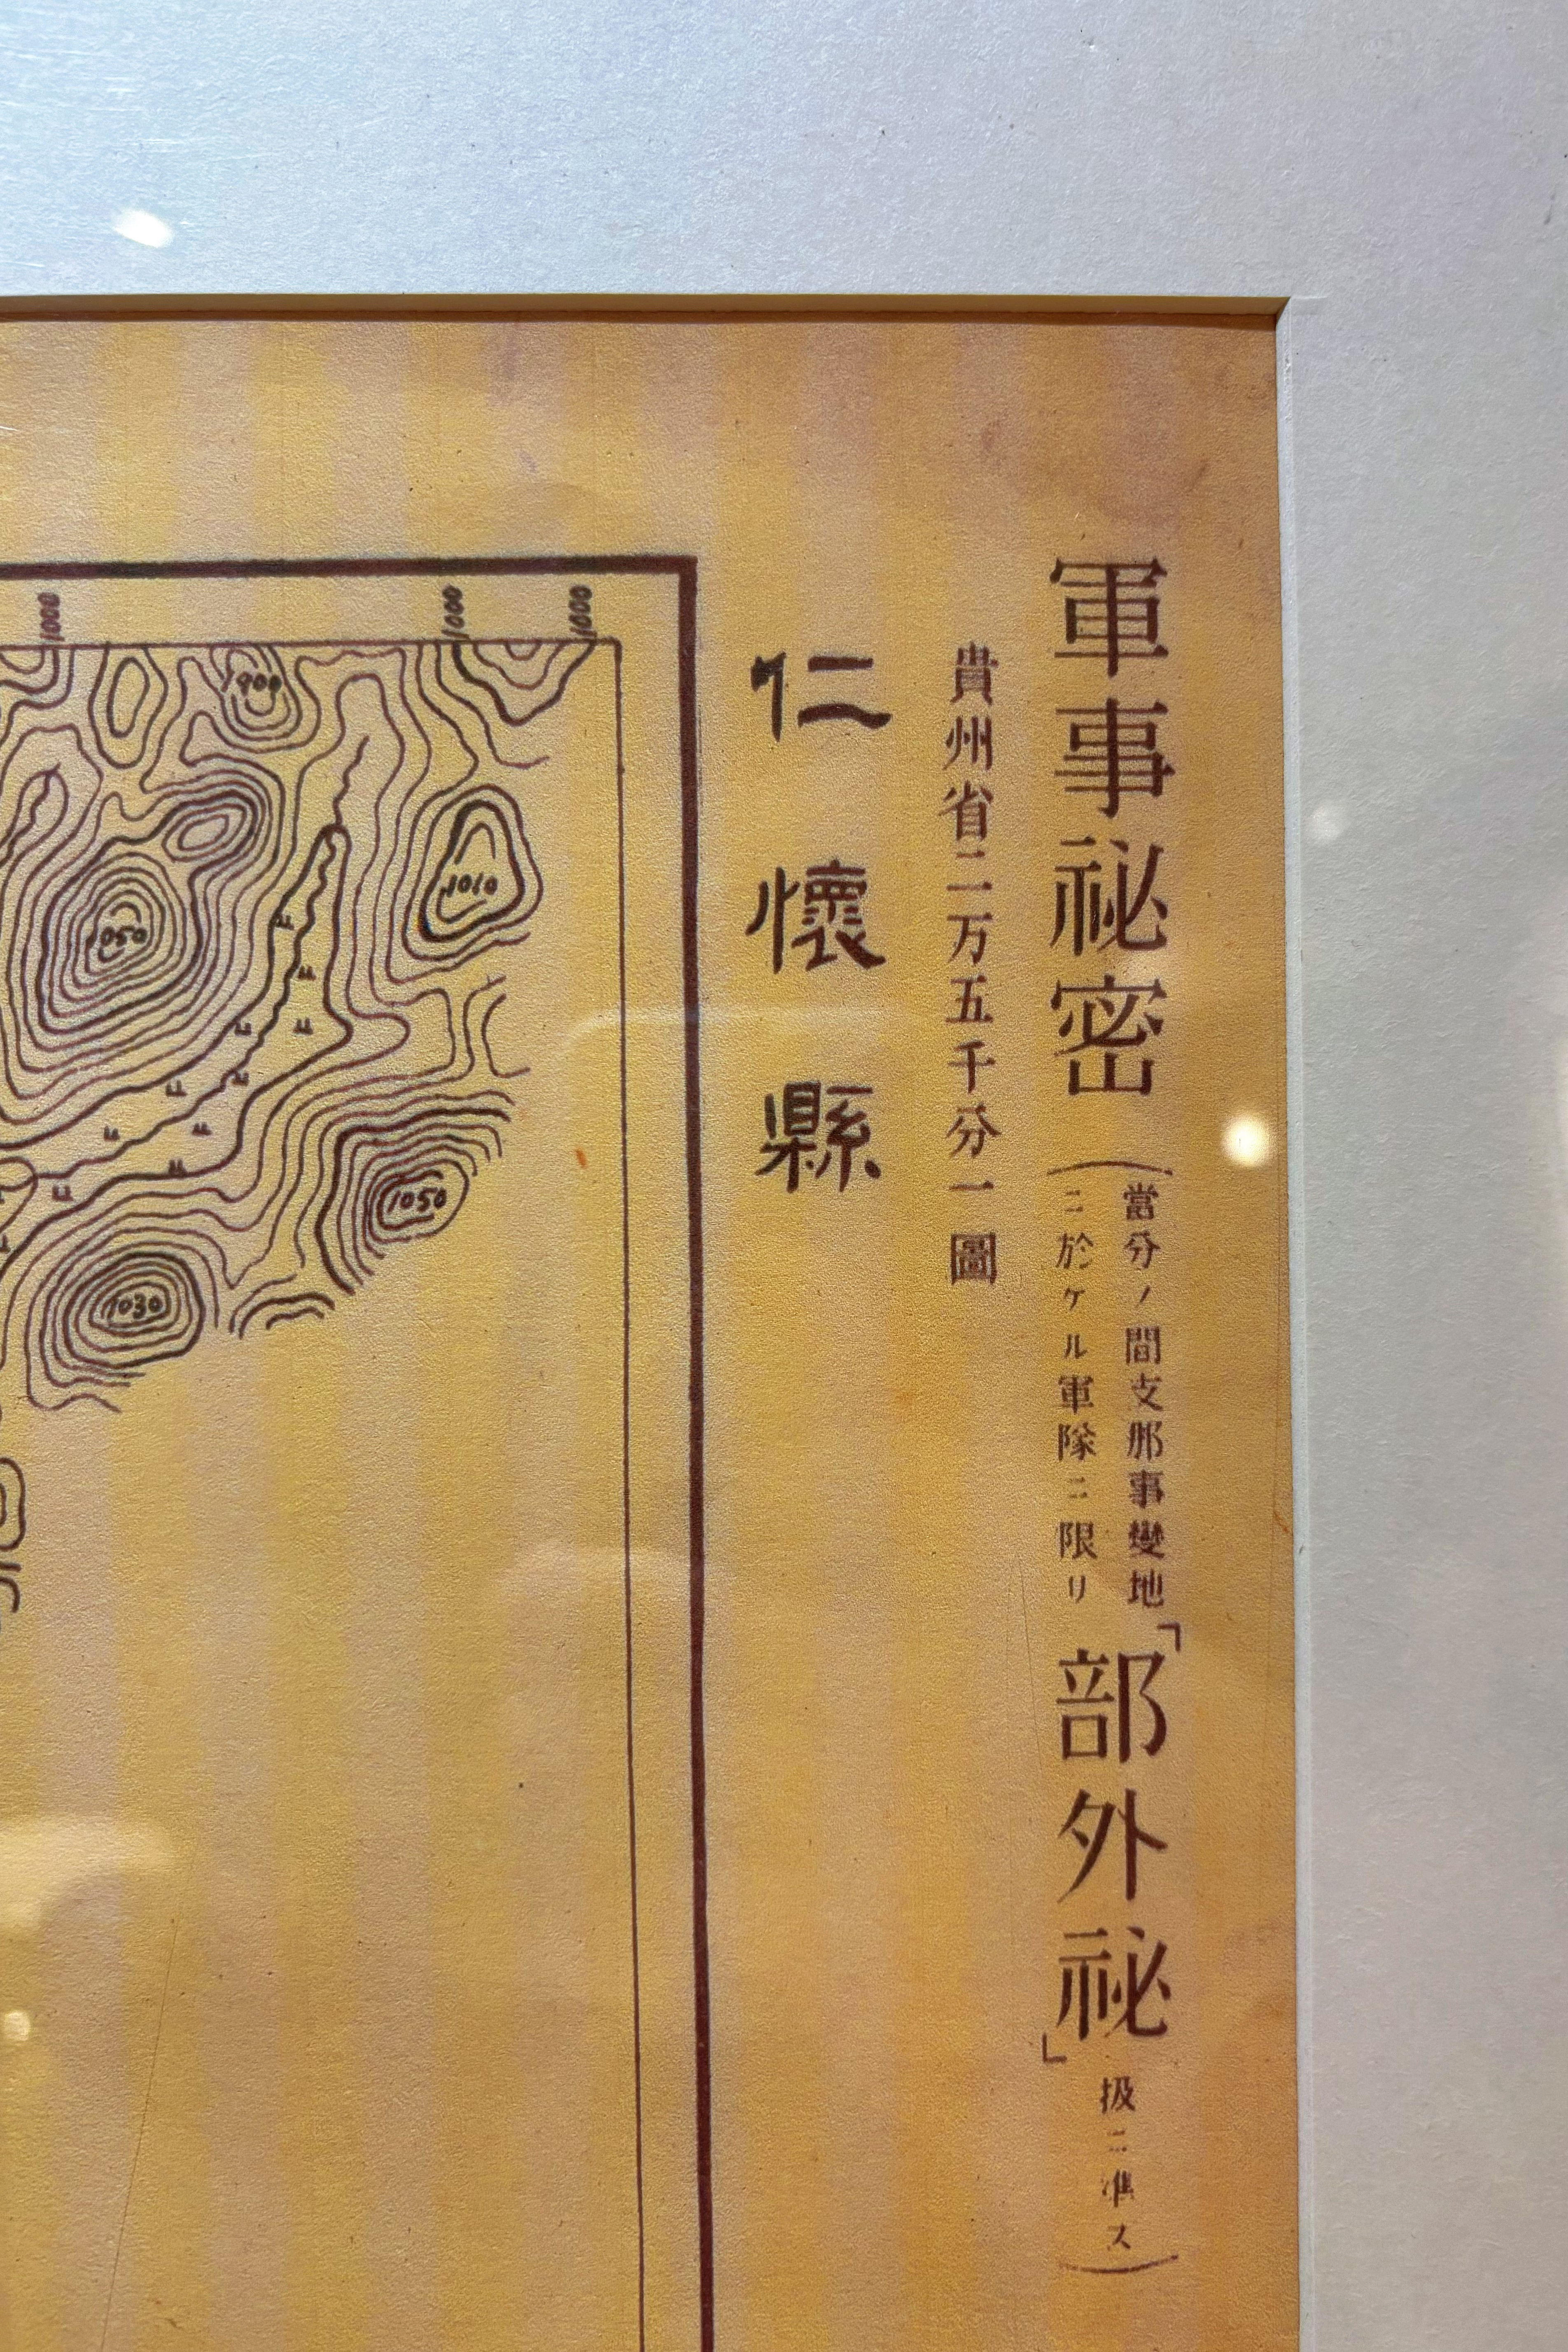 軍事祕密(當分ノ間支那事變地
ニ於ケル軍隊ニ限リ
「部外祕」扱ニ準ス)
貴州省二万五千分一圖
仁懷縣
1000
1000
1000
900
1010
1050
1050
1030